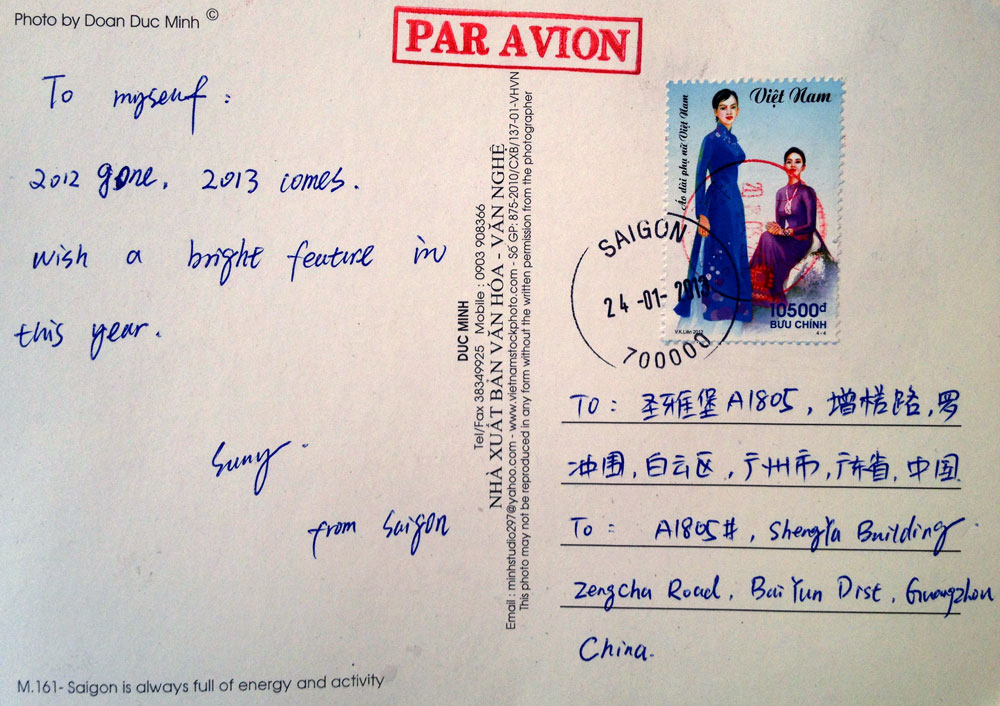 Photo by Doan Duc Minh ©
PAR AVION
To myself:
2012 gone, 2013 comes.
wish a bright feature in
this year.
Suny.
from Saigon
M.161- Saigon is always full of energy and activity
DUC MINH
Tel/Fax 38349925 Mobile : 0903 908366
NHÀ XUẤT BẢN VĂN HÓA - VĂN NGHỆ
Email : minhstudio297@yahoo.com - www.vietnamstockphoto.com - Số GP: 875-2010/CXB/137-01-VHVN
This photo may not be reproduced in any form without the written permission from the photographer
Việt Nam
Áo dài phụ nữ Việt Nam
10500đ
BƯU CHÍNH
4-4
SAIGON
24-01-2013
700000
TO: 圣雅堡A1805, 增槎路, 罗
冲围, 白云区, 广州市, 广东省, 中国
TO: A1805#, ShengYa Building
Zengcha Road, BaiYun Dist, Guangzhou
China.